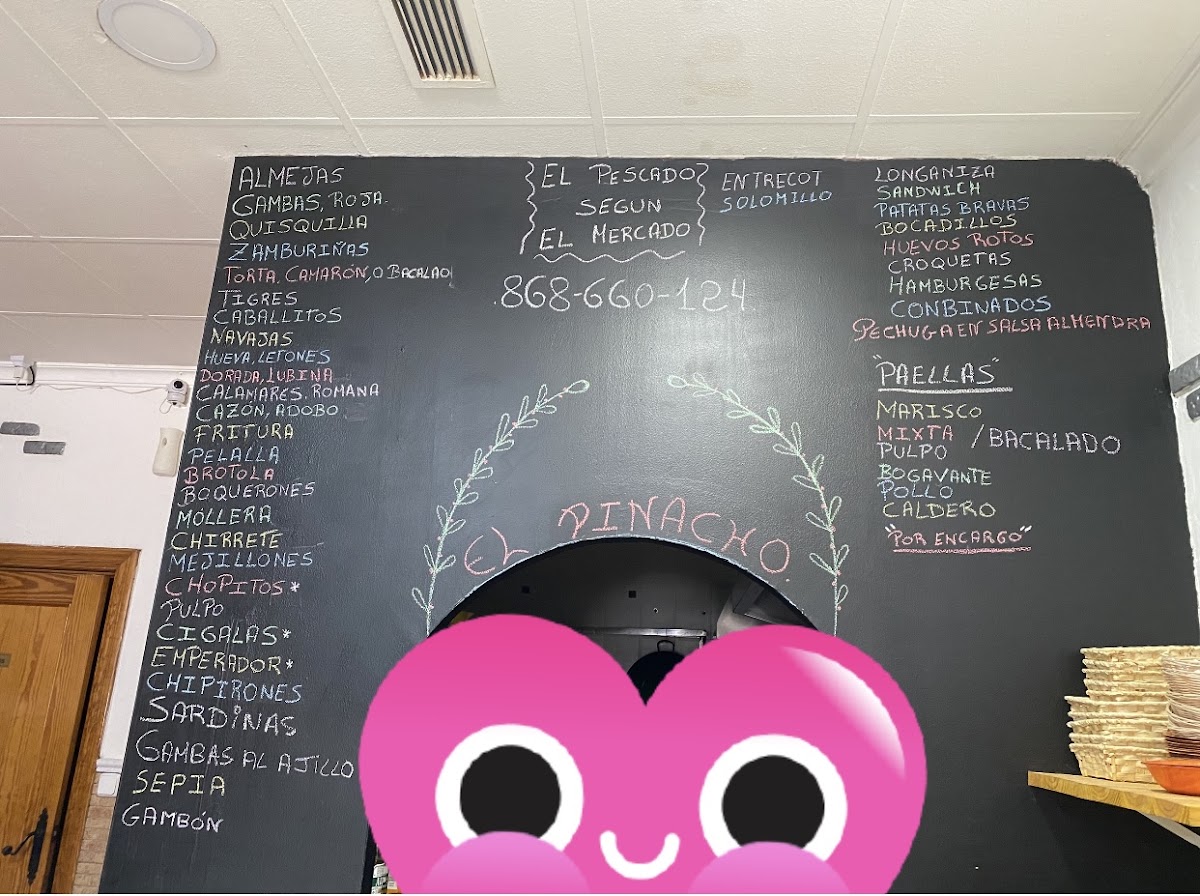 ALMEJAS
GAMBAS, ROJA.
QUISQUILLA
ZAMBURIÑAS
TORTA, CAMARÓN, O BACALAO
TIGRES
CABALLITOS
NAVAJAS
HUEVA, LETONES
DORADA, LUBINA
CALAMARES, ROMANA
CAZÓN, ADOBO
FRITURA
PELALLA
BROTOLA
BOQUERONES
MOLLERA
CHIRRETE
MEJILLONES
CHOPITOS*
PULPO
CIGALAS*
EMPERADOR*
CHIPIRONES
SARDINAS
GAMBAS AL AJILLO
SEPIA
GAMBÓN
EL PESCADO
SEGUN
EL MERCADO
868-660-124
EL PINACHO
ENTRECOT
SOLOMILLO
LONGANIZA
SANDWICH
PATATAS BRAVAS
BOCADILLOS
HUEVOS ROTOS
CROQUETAS
HAMBURGESAS
CONBINADOS
PECHUGA EN SALSA ALMENDRA
"PAELLAS"
MARISCO
MIXTA /BACALADO
PULPO
BOGAVANTE
POLLO
CALDERO
"POR ENCARGO"